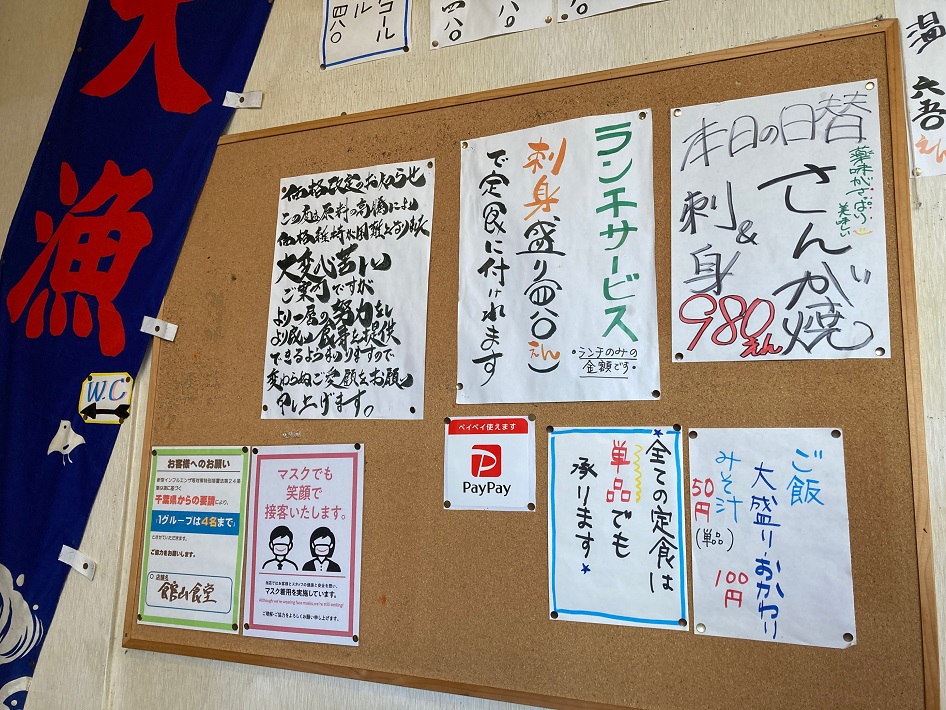 大漁
W.C
コール
ル
四八〇
八〇
九〇
四八〇
温
六五
えん
価格改定のお知らせ
この度は原料の高騰により
価格維持が困難となりました
大変心苦しい
ご案内ですが
より一層の努力をし
より良い食事を提供
できるようまいりますので
変わらぬご愛顧をお願い
申し上げます。
ランチサービス
刺身盛り(四八〇えん)
で定食に付けれます
・ランチのみの
金額です・
本日の日替
薬味がさっぱり
美味しい
さんが焼
&
刺身
980えん
お客様へのお願い
新型インフルエンザ等対策特別措置法第24条
第9項に基づく
千葉県からの要請により、
1グループは4名まで
とさせていただきます。
ご協力をお願いします。
店舗名
館山食堂
マスクでも
笑顔で
接客いたします。
当店ではお客様とスタッフの健康と安全を想い、
マスク着用を実施しています。
Although we're wearing face masks, we're still smiling!
ご理解・ご協力をよろしくお願い申し上げます。
ペイペイ使えます
PayPay
全ての定食は
単品でも
承ります
ご飯
大盛り・おかわり
100円
みそ汁
50円
(単品)